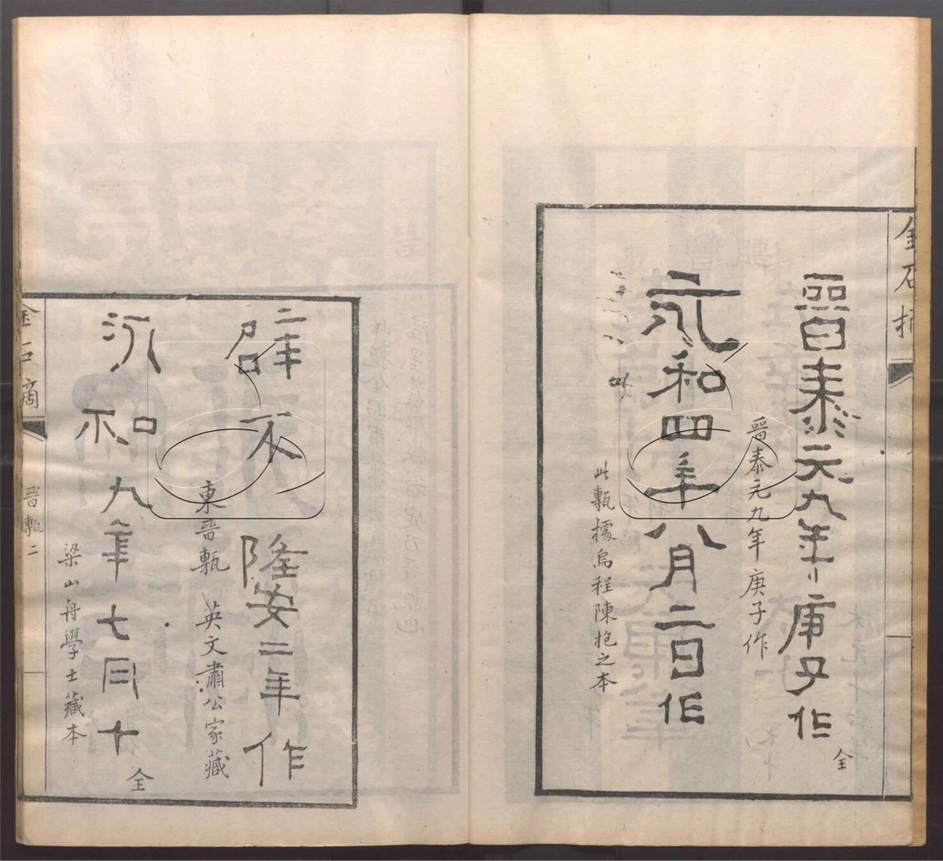 金石摘
晉泰元九年庚子作
全
晉泰元九年庚子作
永和四年八月二日作
此甎據烏程陳抱之本
隆安二年作
東晉甎 英文肅公家藏
永和九年七月十
全
梁山舟學士藏本
金石摘 晉甎二